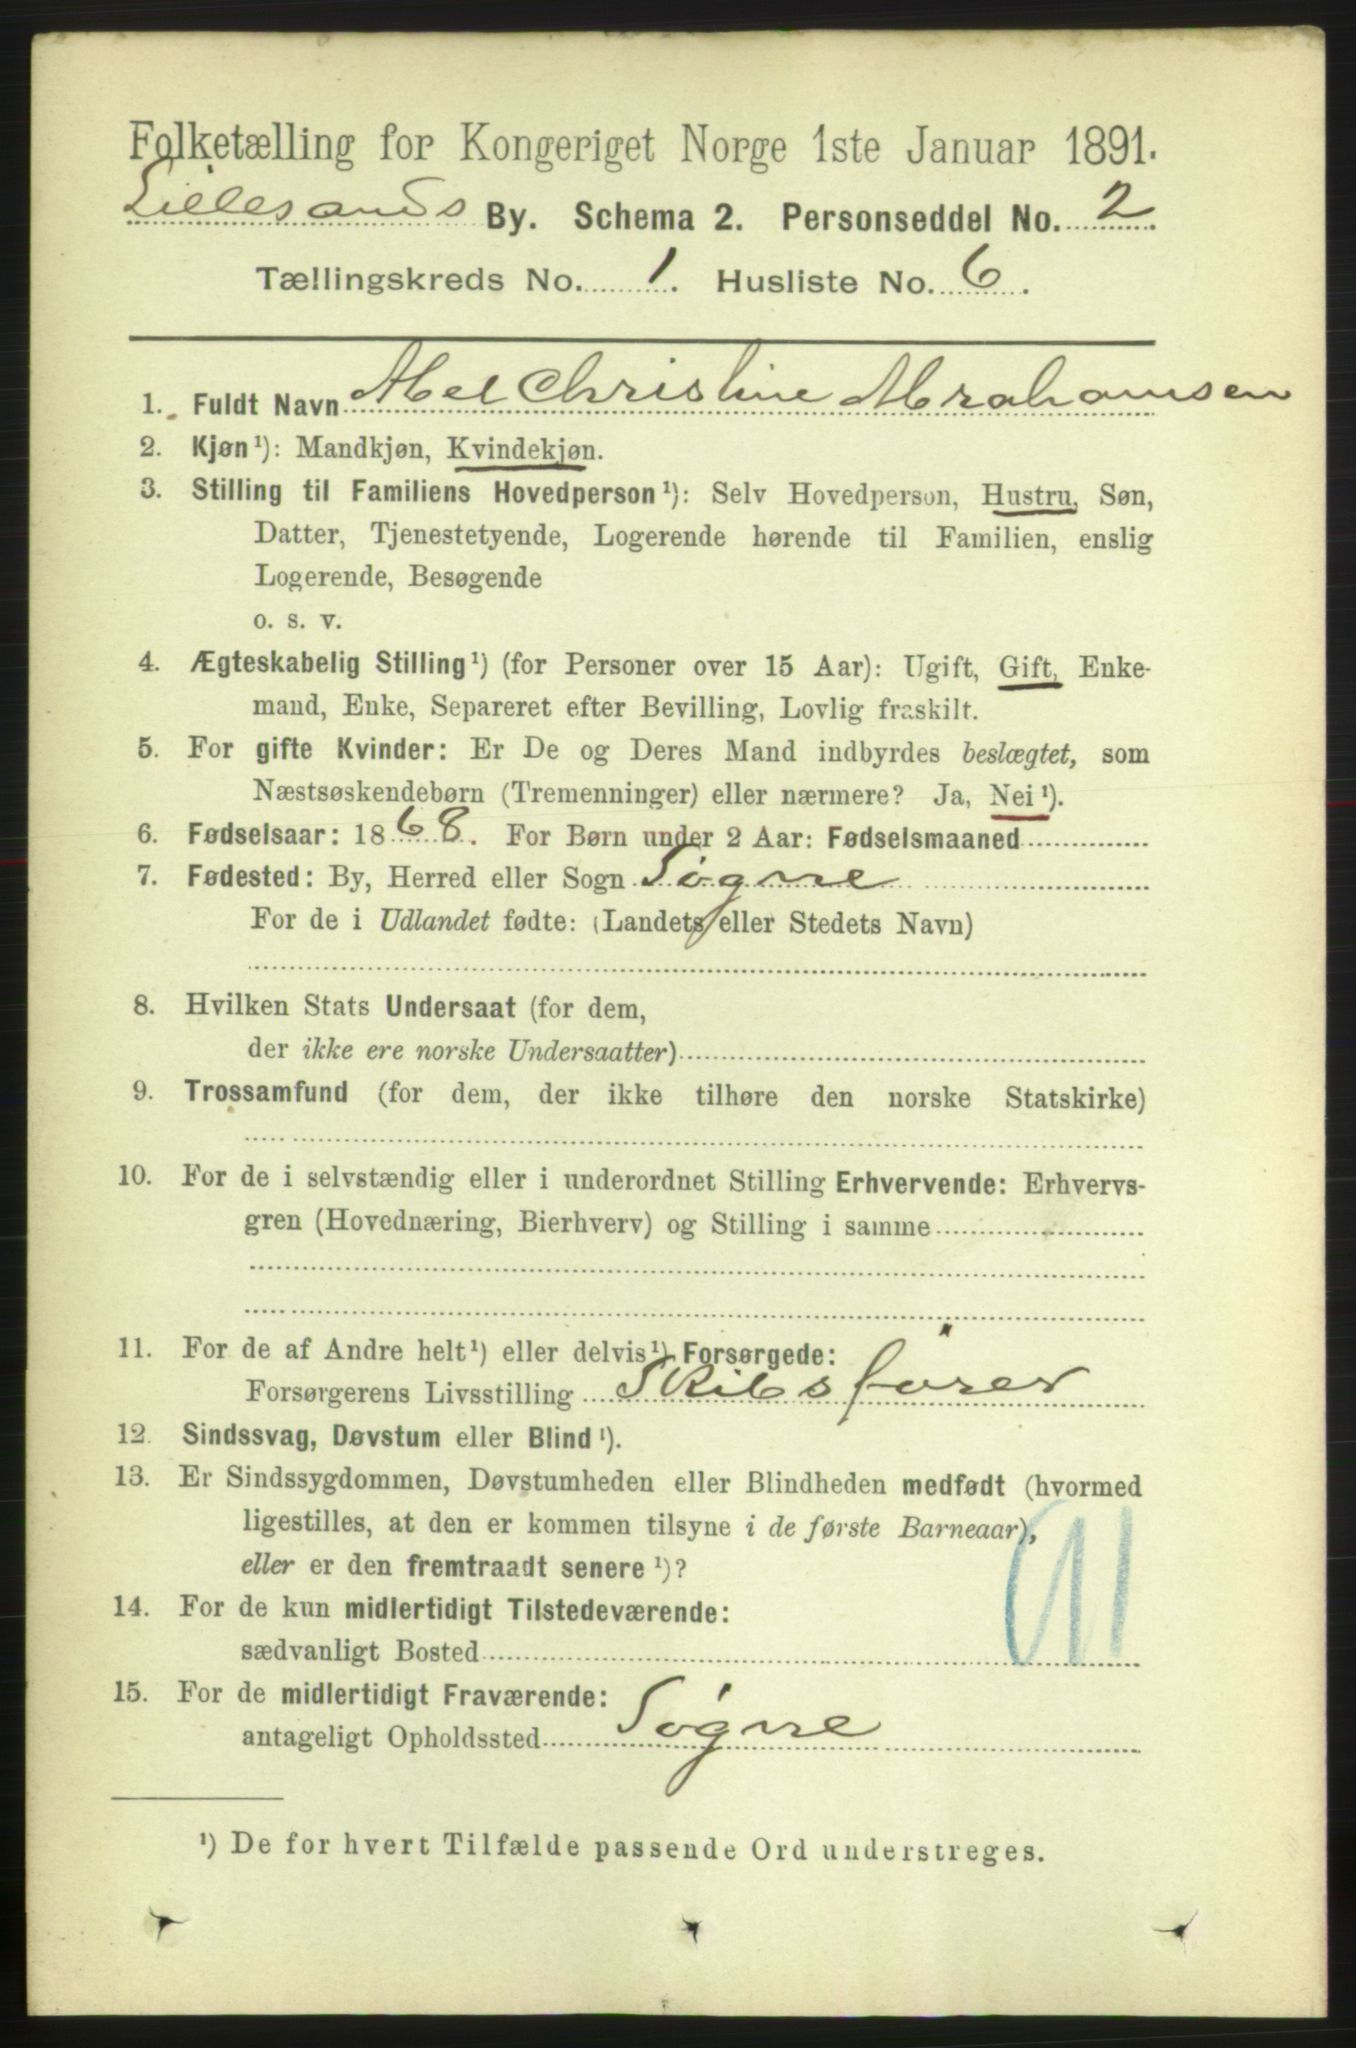 Folketælling for Kongeriget Norge 1ste Januar 1891.
Lillesands By. Schema 2. Personseddel No. 2.
Tællingskreds No. 1. Husliste No. 6.
1. Fuldt Navn Abel Christine Abrahamsen
2. Kjøn¹): Mandkjøn, Kvindekjøn.
3. Stilling til Familiens Hovedperson¹): Selv Hovedperson, Hustru, Søn,
Datter, Tjenestetyende, Logerende hørende til Familien, enslig
Logerende, Besøgende
o. s. v.
4. Ægteskabelig Stilling¹) (for Personer over 15 Aar): Ugift, Gift, Enke-
mand, Enke, Separeret efter Bevilling, Lovlig fraskilt.
5. For gifte Kvinder: Er De og Deres Mand indbyrdes beslægtet, som
Næstsøskendebørn (Tremenninger) eller nærmere? Ja, Nei¹).
6. Fødselsaar: 1868. For Børn under 2 Aar: Fødselsmaaned
7. Fødested: By, Herred eller Sogn Søgne
For de i Udlandet fødte: (Landets eller Stedets Navn)
8. Hvilken Stats Undersaat (for dem,
der ikke ere norske Undersaatter)
9. Trossamfund (for dem, der ikke tilhøre den norske Statskirke)
10. For de i selvstændig eller i underordnet Stilling Erhvervende: Erhvervs-
gren (Hovednæring, Bierhverv) og Stilling i samme
11. For de af Andre helt¹) eller delvis¹) Forsørgede:
Forsørgerens Livsstilling Skibsfører
12. Sindssvag, Døvstum eller Blind¹).
13. Er Sindssygdommen, Døvstumheden eller Blindheden medfødt (hvormed
ligestilles, at den er kommen tilsyne i de første Barneaar),
eller er den fremtraadt senere¹)?
14. For de kun midlertidigt Tilstedeværende:
sædvanligt Bosted
15. For de midlertidigt Fraværende:
antageligt Opholdssted Søgne
¹) De for hvert Tilfælde passende Ord understreges.